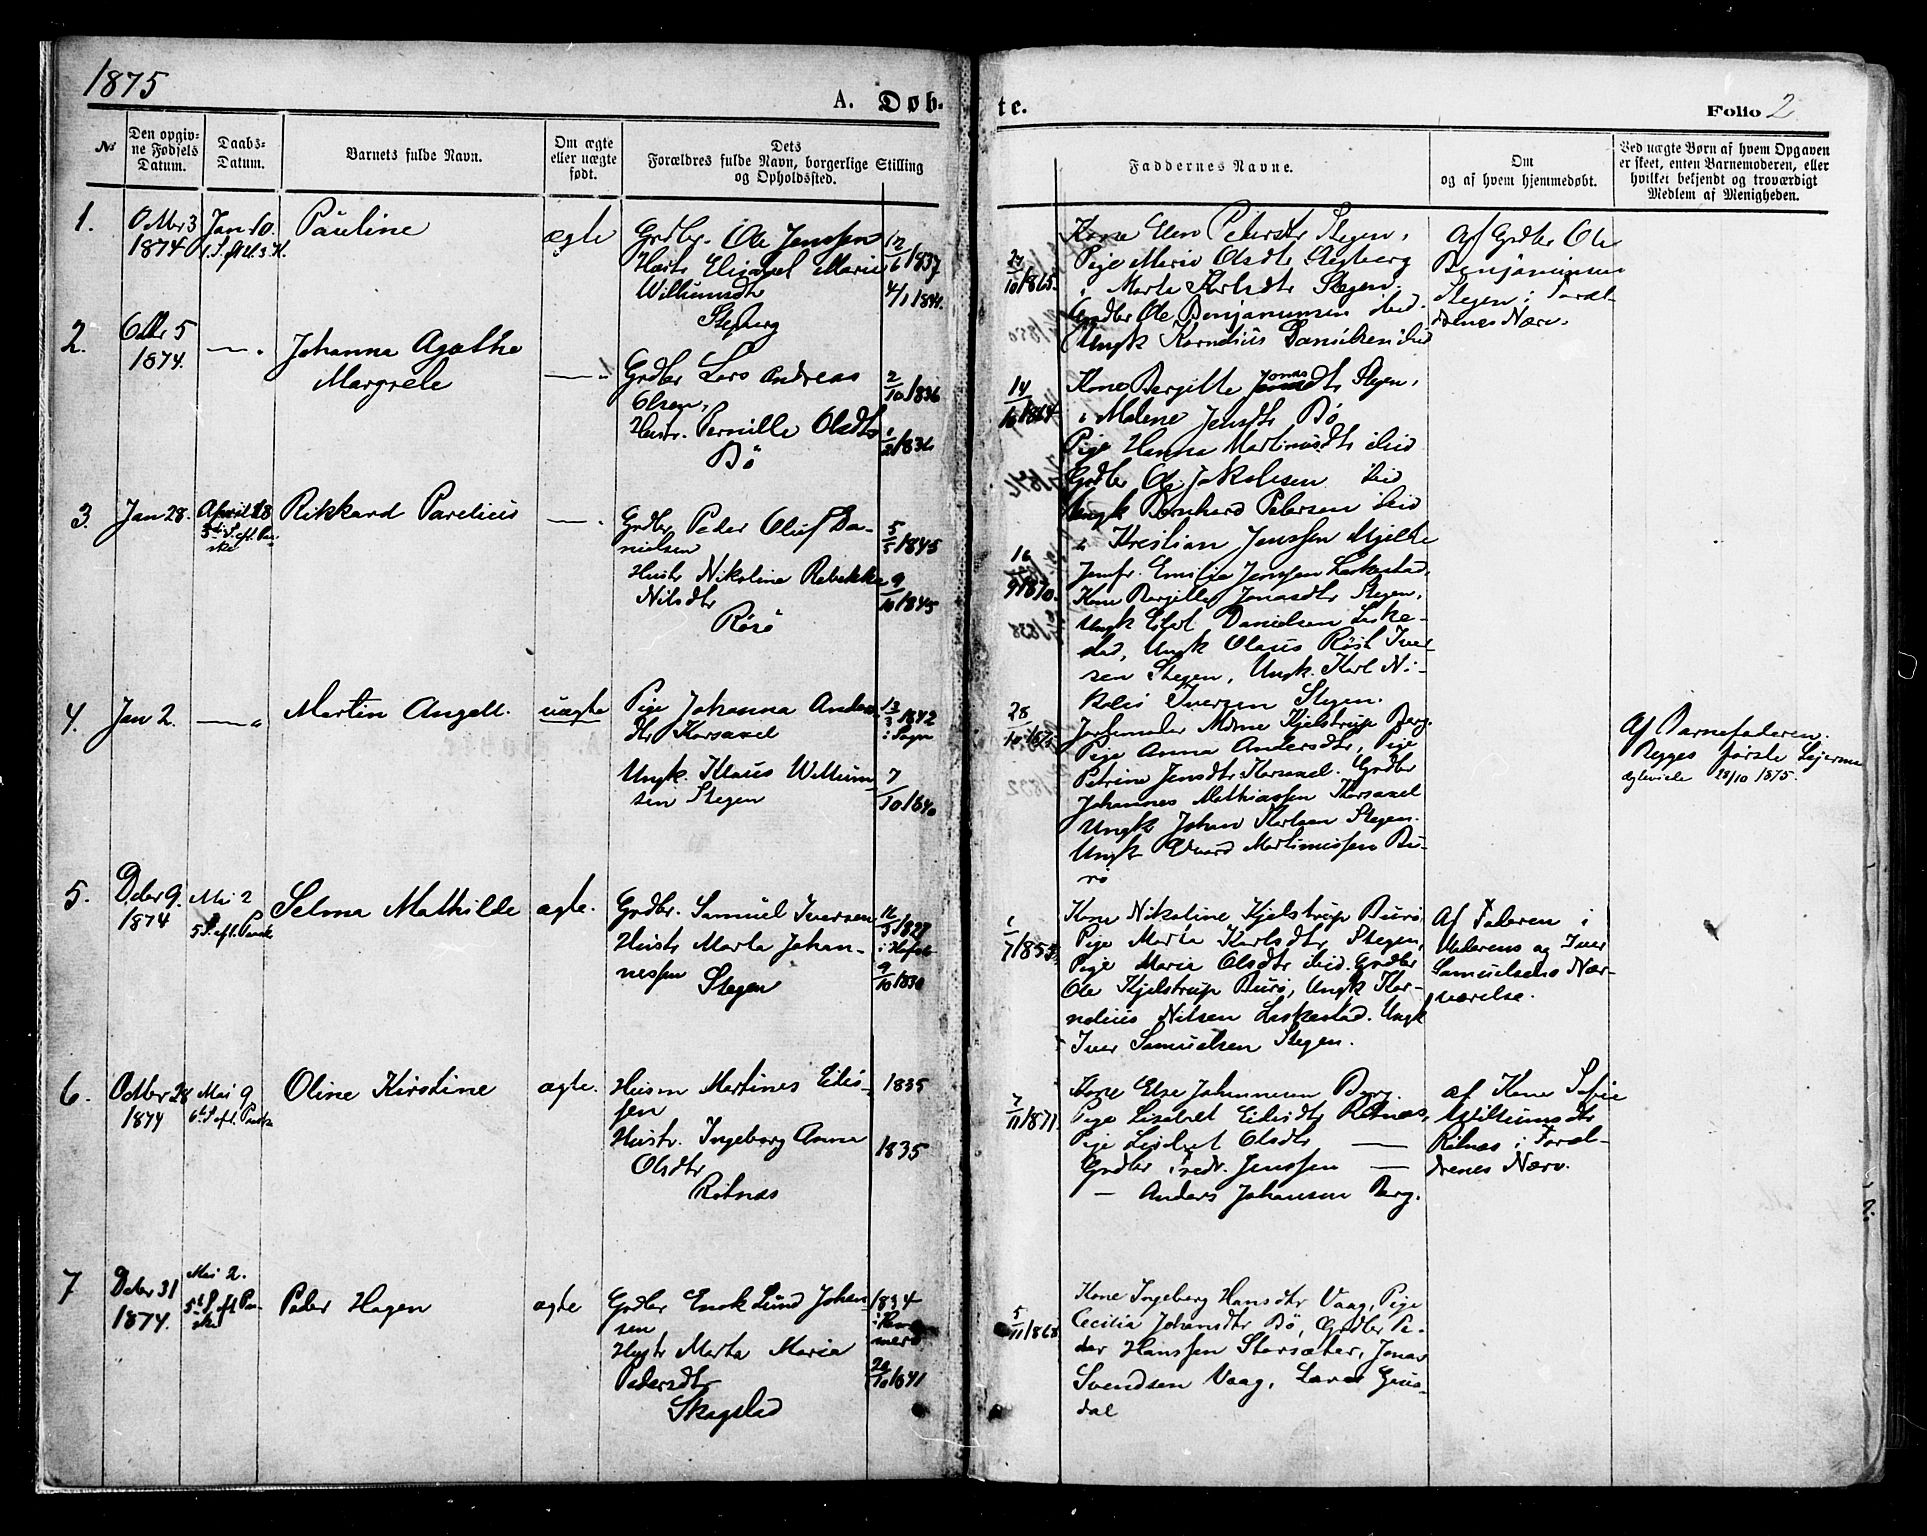 1875
A. Døb-
te.
Folio 2
№
Den opgiv-
ne Fødsels
Datum.
Daabs-
Datum.
Barnets fulde Navn.
Om ægte
eller uægte
født.
Dets
Forældres fulde Navn, borgerlige Stilling
og Opholdssted.
Faddernes Navne.
Om
og af hvem hjemmedøbt.
Ved uægte Børn af hvem Opgaven
er skeet, enten Barnemoderen, eller
hvilket bekjendt og troværdigt
Medlem af Menigheden.
1.
Octbr 3
1874
Jan 10.
Pauline
ægte
Grdbr. Ole Jenssen
Hustr Elisabet Marie
Willumsdtr
Stegberg
12/6 1837
4/1 1841.
24/10 1865.
Kone Elen Petersdtr Stegen,
Pige Marie Olsdtr Stegberg
" Marta Karlsdtr Stegen.
Grdbr Ole Benjaminsen ibid.
Ungk Kornelius Danielsen ibid
Af Grdbr Ole
Benjaminsen
Stegen i Foræl-
drenes Nærv.
2.
Octbr 5
1874.
— " .
Johanna Agathe
Margrete
— "
Grdbr Lars Andreas
Olsen,
Hustr. Pernille Olsdtr
Bø
2/10 1836
1/2 1836
14/10 1864
Kone Bergitte Jonasdtr Stegen,
" Malene Jensdtr Bø
Pige Hanna Martinusdtr ibid
Grdbr Ole Jakobsen ibid
Ungk Bernhard Petersen ibid
3.
Jan 28.
April 18
5te S. eft. Paa-
ske
Rikkard Parelius
— " .
Grdbr Peder Oluf Da-
nielsen
Hustr Nikoline Rebekka
Nilsdtr
Røsø
5/5 1845
9/10 1845
16/9 1870.
" Kristian Jenssen Mjelde
Jomfr. Emilie Jenssen Leskestad.
Kone Bergitte Jonasdtr Stegen,
Ungk Eilert Danielsen Leske-
stad, Ungk Olaus Røst Iver-
sen Stegen, Ungk. Karl Ni-
kolai Iversen Stegen.
4.
Jan 2.
— "
Martin Angell.
uægte
Pige Johanna Anders-
dtr Korsaxel
Ungk. Klaus Willum-
sen Stegen
13/3 1842
i Sogn
7/10 1840
28/10 1875
Jordemoder Mdme Kjelstrup Berg.
Pige Anna Andersdtr, Pige
Petrine Jensdtr Korsaxel. Grdbr
Johannes Mathiassen Korsaxel
Ungk Johan Karlsen Stegen.
Ungk Edvard Martinussen Bu-
rø
Af Barnefaderen.
Begges første Lejermaal
ægteviede 28/10 1875.
5.
Dcbr 9.
1874
Mai 2
5 S. eft. Paaske
Selma Mathilde
ægte.
Grdbr. Samuel Iversen
Hustr Marta Johan-
nessen
Stegen
12/5 1827
9/10 1830
1/7 1855
Kone Nikoline Kjelstrup Burø.
Pige Marta Karlsdtr Stegen,
Pige Maria Olsdtr ibid. Grdbr
Ole Kjelstrup Burø, Ungk Kor-
nelius Nilsen Leskestad. Ungk
Iver Samuelsen Stegen.
Af Faderen i
Moderens og Iver
Samuelsens Nær-
værelse.
6.
Octbr 28
1874
Mai 9
6te S. eft. Paaske
Oline Kirstine
ægte.
Husm Martines Edis-
sen
Hustr. Ingeborg Anna
Olsdtr
Rotnæs
1835
1835
7/11 1871.
Kone Else Johannesen Berg.
Pige Lisabet Eilersdtr Rotnæs,
Pige Lisabet Olsdtr —
Grdbr Fredr. Jenssen —
— Anders Johansen Berg.
af Kone Sofie
Willumsdtr
Rotnæs i Foræl-
drenes Nærv.
7
Dcbr 31
1874.
Mai 2.
5te S. eft. Paa-
ske
Peder Hagen
ægte
Grdbr Enok Lund Johan-
sen
Hustr Marta Maria
Pedersdtr
Skagstad
1834
20/10 1841
5/11 1868
Kone Ingeborg Hansdtr Vaag, Pige
Cecilia Johansdtr Bø, Grdbr Pe-
der Hanssen Storsæter, Jonas
Svendsen Vaag,
dal